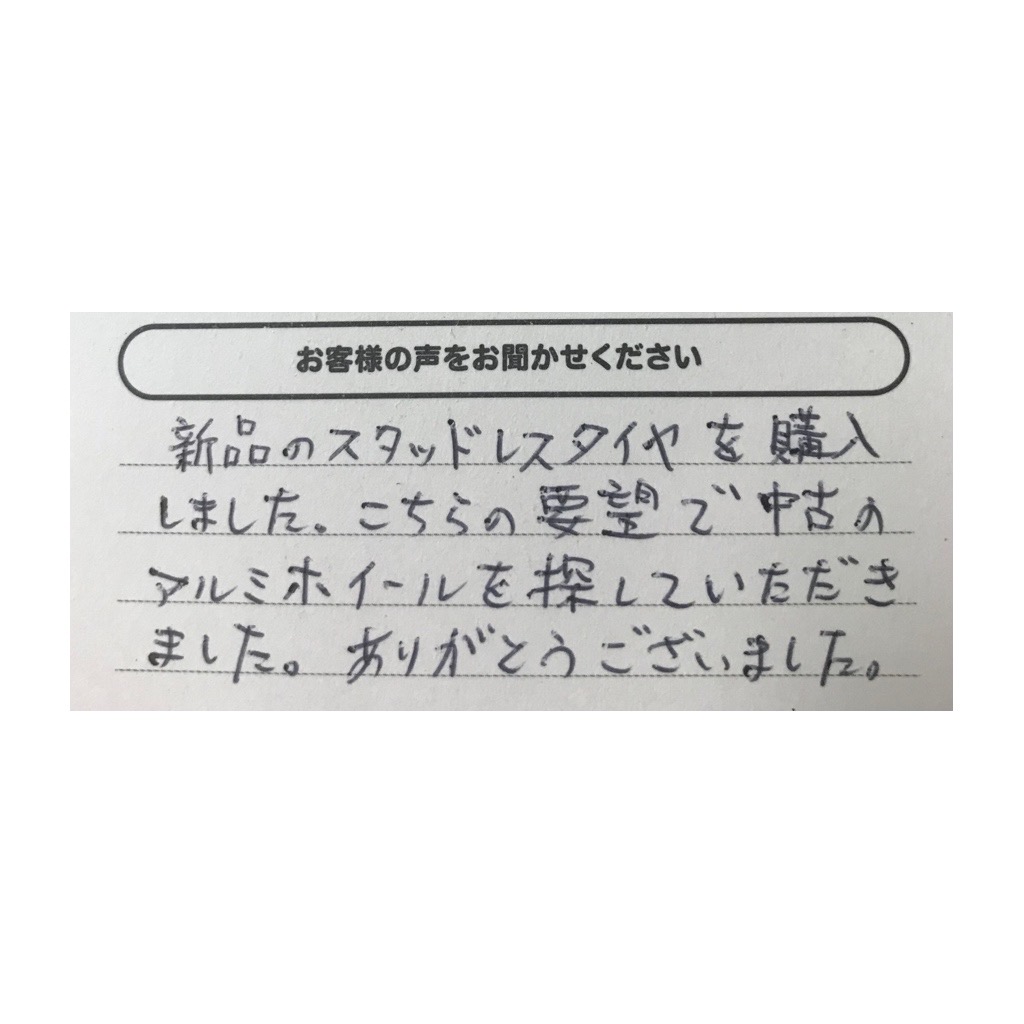 お客様の声をお聞かせください
新品のスタッドレスタイヤを購入
しました。こちらの要望で中古の
アルミホイールを探していただき
ました。ありがとうございました。